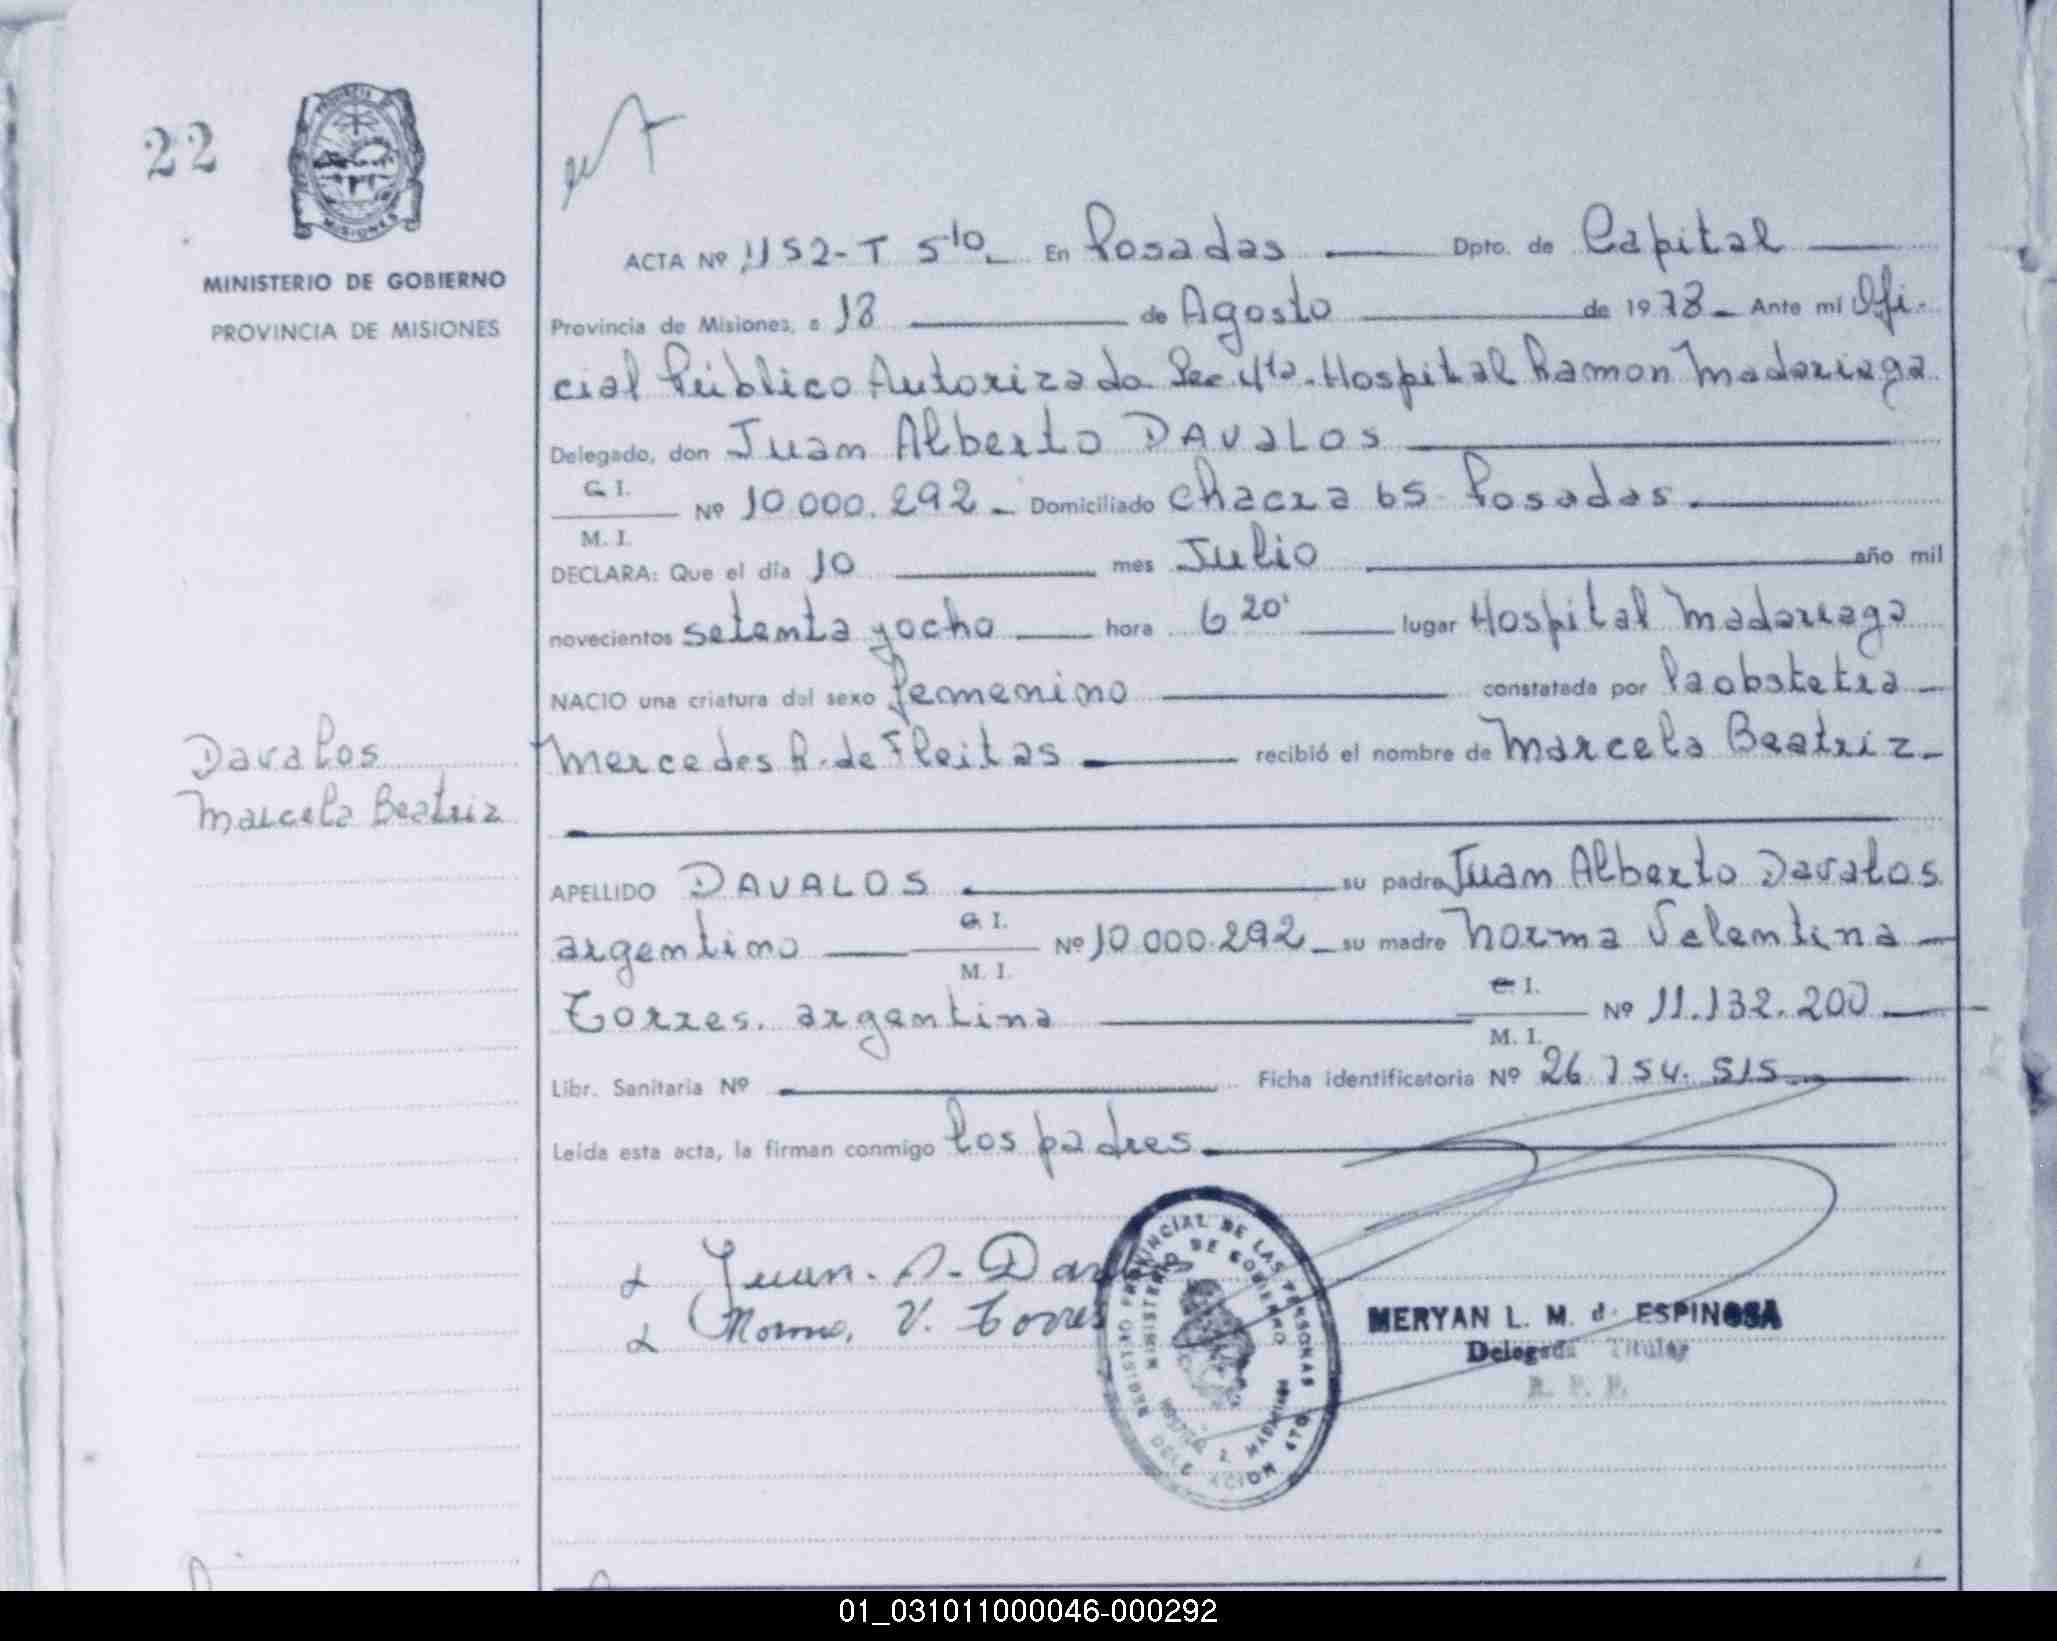 22
PROVINCIA DE
MISIONES
MINISTERIO DE GOBIERNO
PROVINCIA DE MISIONES
ACTA Nº 1152-T 5to. En Posadas Dpto. de Capital
Provincia de Misiones, a 18 de Agosto de 1978 Ante mí Ofi-
cial Público Autorizado Sec 4ta. Hospital Ramon Madariaga
Delegado, don Juan Alberto DAVALOS
C. I.
M. I.
Nº 10.000.292 Domiciliado Chacra 65 Posadas
DECLARA: Que el día 10 mes Julio año mil
novecientos setenta y ocho hora 6 20' lugar Hospital Madariaga
NACIO una criatura del sexo femenino constatada por la obstetra
Mercedes R. de Fleitas recibió el nombre de Marcela Beatriz
Davalos
Marcela Beatriz
APELLIDO DAVALOS su padre Juan Alberto Davalos
argentino C. I. M. I. Nº 10.000.292 su madre Norma Valentina
Torres. argentina C. I. M. I. Nº 11.132.200
Libr. Sanitaria Nº Ficha identificatoria Nº 26.754.515
Leída esta acta, la firman conmigo los padres
Juan. A. Dav
Norma. V. Torres
REGISTRO PROVINCIAL DE LAS PERSONAS
MINISTERIO DE GOBIERNO
DELEGACION 4TO
MERYAN L. M. de ESPINOSA
Delegada Titular
R. P. P.
01_031011000046-000292